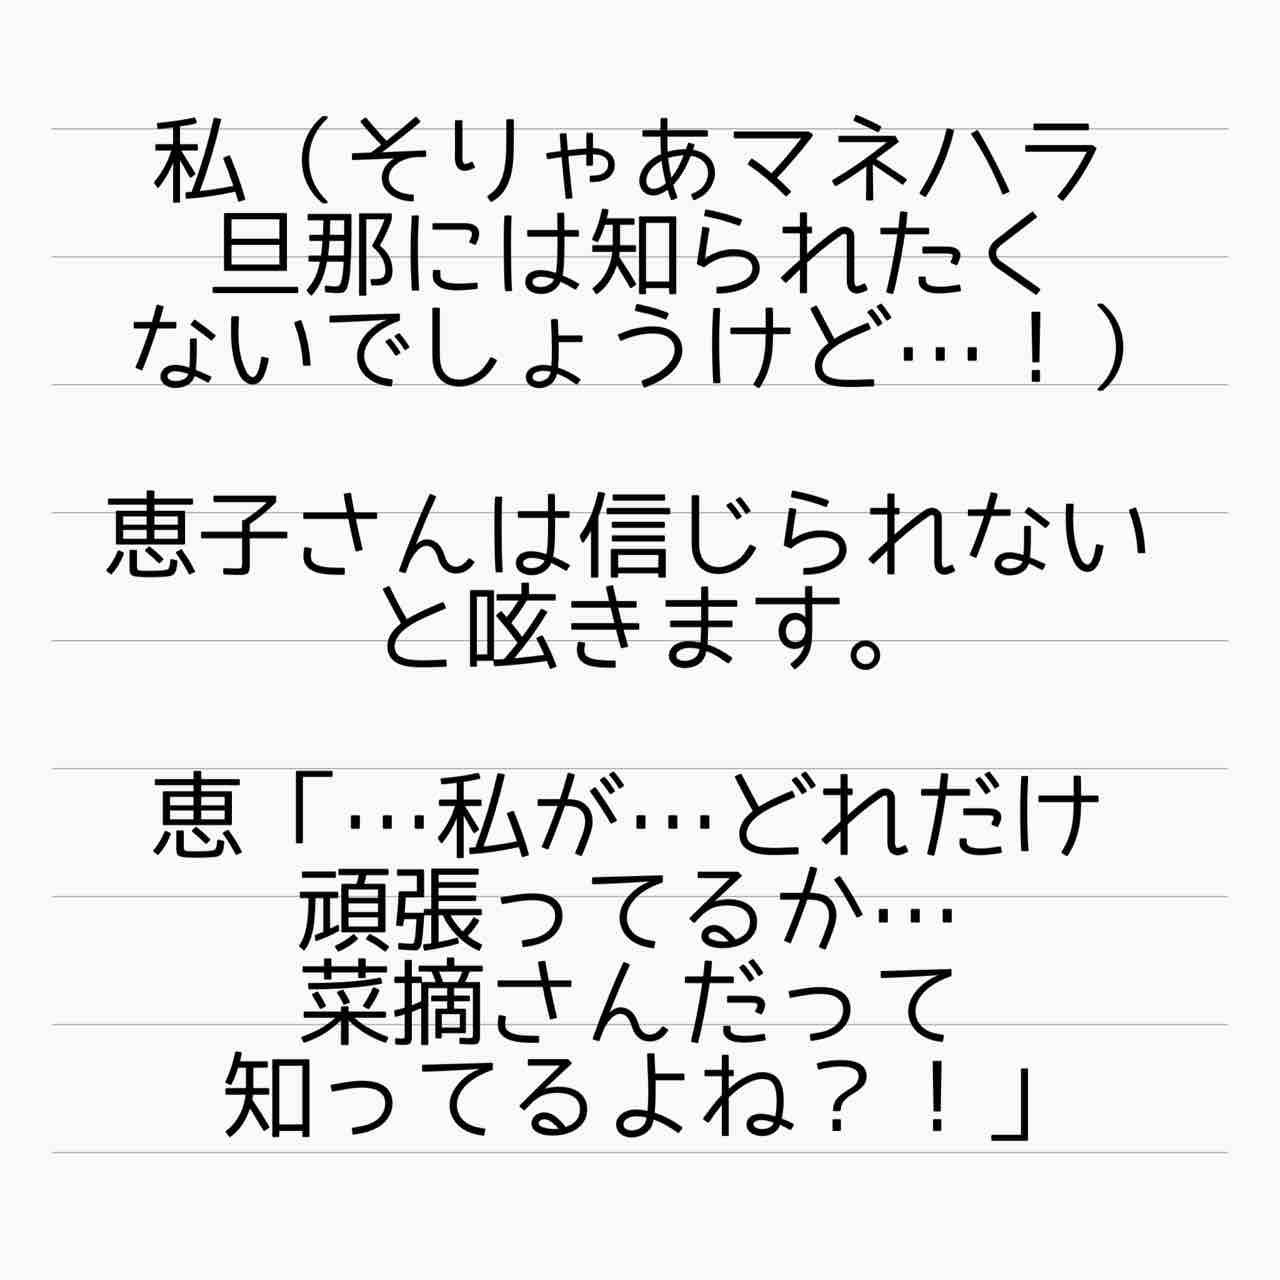 私（そりゃあマネハラ
旦那には知られたく
ないでしょうけど…！）
恵子さんは信じられない
と呟きます。
恵「…私が…どれだけ
頑張ってるか…
菜摘さんだって
知ってるよね？！」